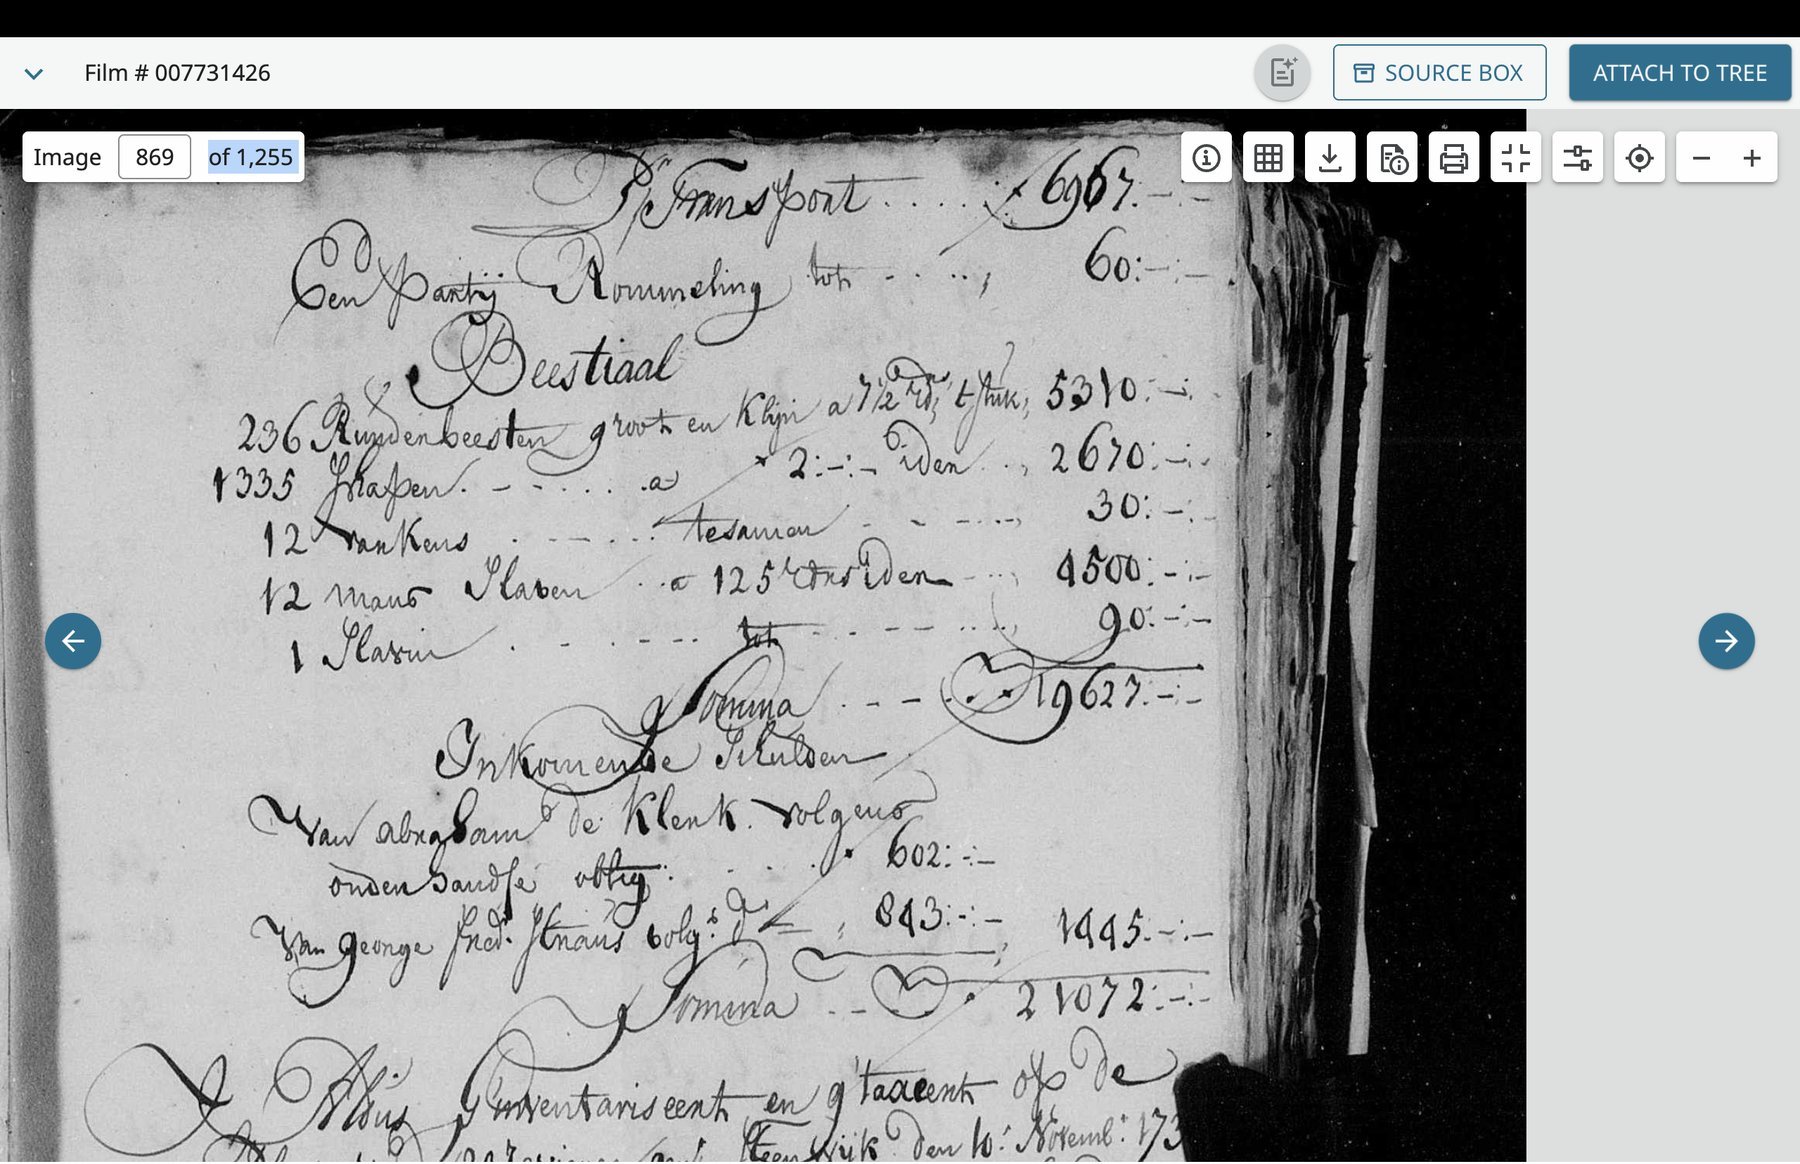 Film # 007731426
SOURCE BOX
ATTACH TO TREE
Image 869 of 1,255
P:r Transport . . . . . ƒ 6967:-:-
Een Partij Rommeling tot - . . . , 60:-:-
Beestiaal
236 Rundenbeesten groot en Klijn a 7 1/2 rds, t stuk, 5310:-:
1335 Schapen. - - . . . . a ƒ 2:-:- iden . . , 2670:-:-
12 varkens . - - . . . tesamen - - - . . . , 30:-:-
12 mans Slaven . . a 125 rds iden - . . . , 4500:-:-
1 Slavin . - . - - . . tot . . - - - . . . , 90:-:-
Somma . - - . . ƒ 19627:-:-
Inkomende Schulden
Van abraham de Klerk. volgens
onderhandse oblig: - . . . ƒ 602:-:-
Van george fred:k Straus volg:s d:o , 843:-:- , 1445:-:-
Somma . . - . . ƒ 21072:-:-
Aldus g'inventariseert en g'taxeert op de
den 10:' Novemb:r 173